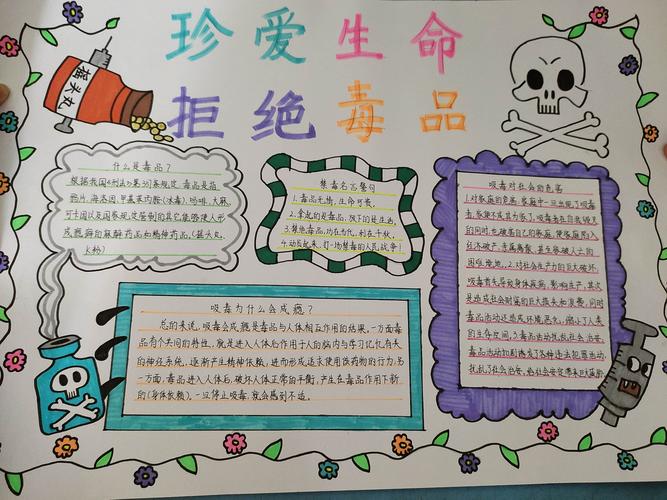 珍爱生命
拒绝毒品
摇头丸
什么是毒品?
根据我国《刑法》第357条规定,毒品是指
鸦片、海洛因、甲基苯丙胺(冰毒)、吗啡、大麻、
可卡因以及国家规定管制的其它能够使人形
成瘾癖的麻醉药品和精神药品。(摇头丸、
K粉)
禁毒名言警句
1.毒品无情,生命可贵。
2.拿起的是毒品,放下的是生命。
3.禁绝毒品,功在当代,利在千秋。
4.动员起来,打一场禁毒的人民战争!
吸毒对社会的危害
1.对家庭的危害:家庭中一旦出现了吸毒
者,家便不成其为家了。吸毒者在自我毁灭
的同时,也破害自己的家庭,使家庭陷入
经济破产、亲属离散、甚至家破人亡的
困难境地。2.对社会生产力的巨大破坏:
吸毒首先导致身体疾病,影响生产,其次
是造成社会财富的巨大损失和浪费,同时
毒品活动还造成环境恶化,缩小了人类
的生存空间。3.毒品活动扰乱社会治安:
毒品活动加剧诱发了各种违法犯罪活动,
扰乱了社会治安,给社会安定带来巨大威胁
吸毒为什么会成瘾?
总的来说,吸毒会成瘾是毒品与人体相互作用的结果,一方面毒
品有个共同的特性,就是进入人体后作用于人的脑内与学习记忆有关
的神经系统,逐渐产生精神依赖,进而形成追求使用该药物的行为;另
一方面,毒品进入人体后,破坏人体正常的平衡,产生在毒品作用下新
的(身体依赖),一旦停止吸毒,就会感到不适。